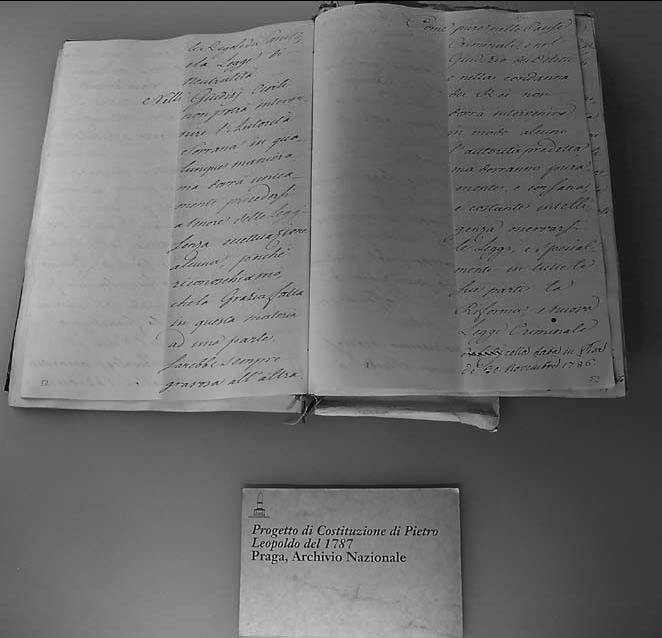 le Regole da
e la Legge di
Neutralità
Nelli Giudizj Civili
non potrà interve-
nire l'Autorità
Sovrana in qua-
lunque maniera,
ma dovrà unica-
mente procedersi
a tenore delle Leggi
senza eccettuazione
alcuna, poichè
riconoschiamo,
che la Grazia fatta
in questa materia
ad una parte,
sarebbe sempre
gravosa all'altra.
52
Come pure nelle Cause
Criminali, e nel
Giudizio dei Delitti
e nella condanna
dei Rei non
dovrà intervenire
in modo alcuno
l'autorità predetta,
ma dovranno pura-
mente, e con sana
e costante intelli-
genza osservarsi
le Leggi, e special-
mente in tutte le
sue parti la
Riforma, e nuova
Legge Criminale
colla data in
de' 30. Novembre 1786.
52
Progetto di Costituzione di Pietro
Leopoldo del 1787
Praga, Archivio Nazionale